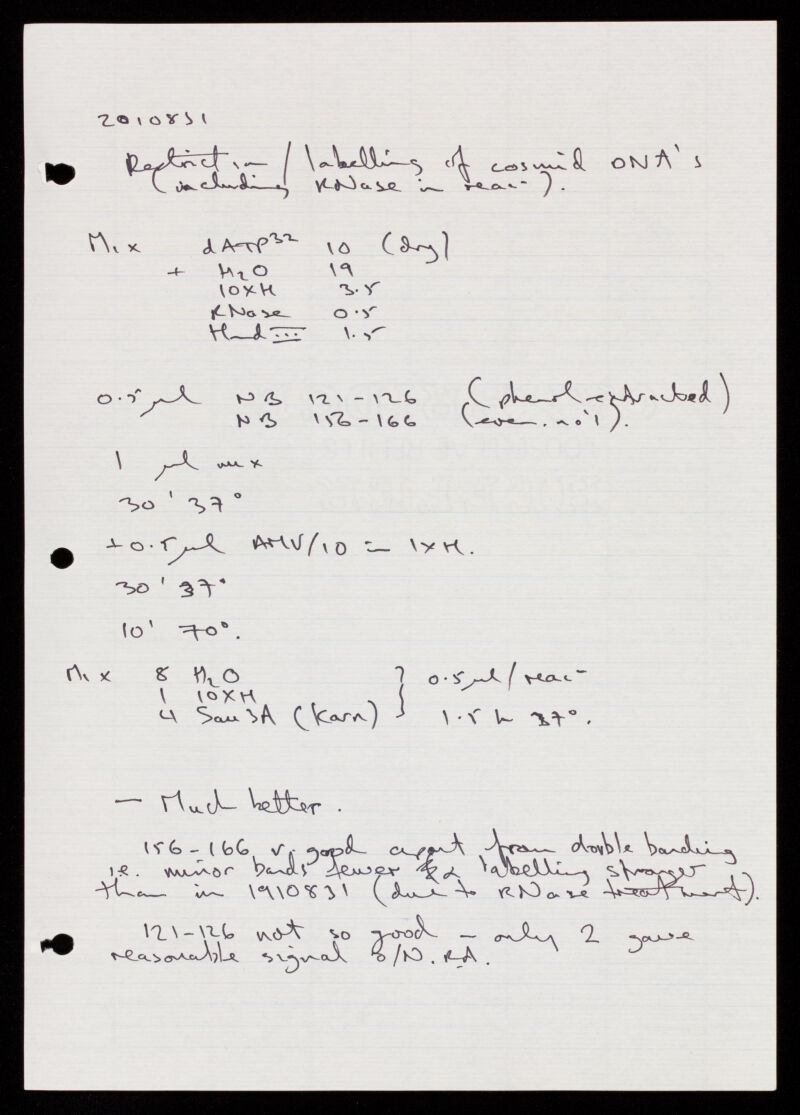 2010831
Restriction / labelling of cosmid DNA's
(including RNase in reac-).
Mix dATP32 10 (dry)
+ H2O 19
10XH 3.5
RNase 0.5
Hind III 1.5
0.5 µl NB 121-126 (phenol-extracted)
NB 156-166 (even. no's).
1 µl mix
30' 37°
+ 0.5 µl AMV/10 in 1XH.
30' 37°
10' 70°.
Mix 8 H2O } 0.5 µl/reac-
1 10XH
4 Sau3A (Karn) 1.5 h 37°.
— Much better.
156-166 v. good apart from double banding
i.e. minor bands fewer & labelling stronger
than in 1910831 (due to RNase treatment).
121-126 not so good - only 2 gave
reasonable signal o/N. R.A.